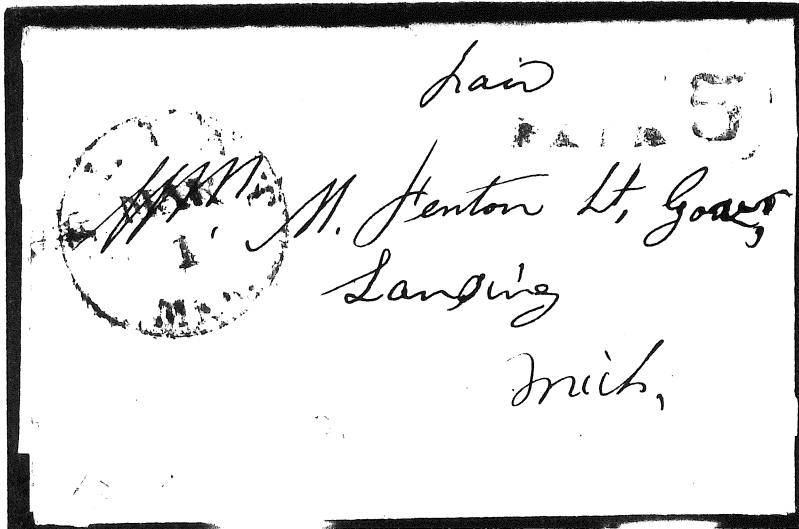 Paid
PAID 5
Wm. M. Fenton Lt, Gover,
1
Lansing
Mich,